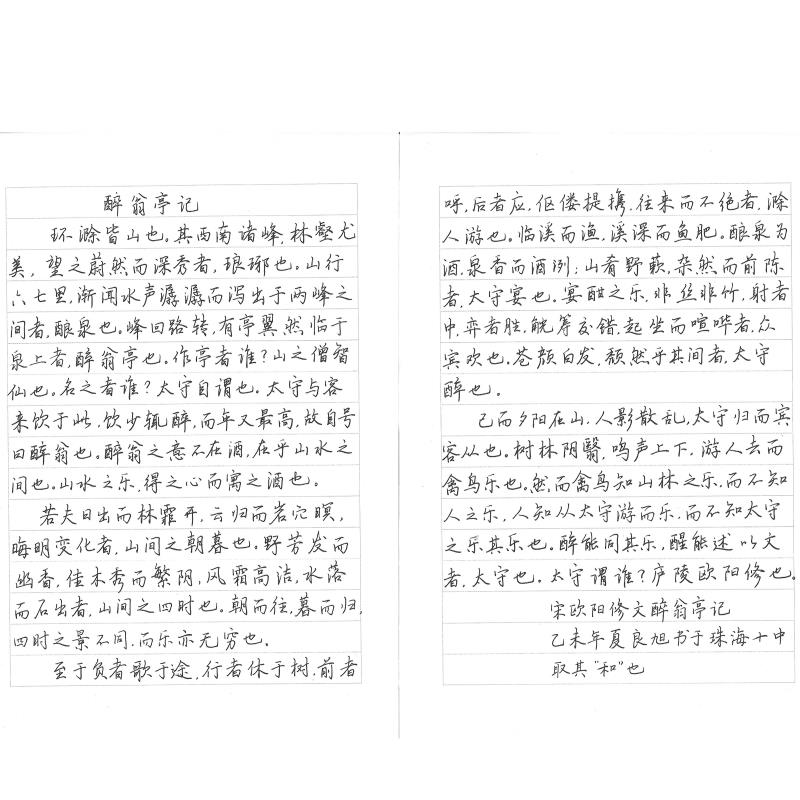 醉翁亭记
环滁皆山也。其西南诸峰,林壑尤
美,望之蔚然而深秀者,琅琊也。山行
六七里,渐闻水声潺潺而泻出于两峰之
间者,酿泉也。峰回路转,有亭翼然临于
泉上者,醉翁亭也。作亭者谁?山之僧智
仙也。名之者谁?太守自谓也。太守与客
来饮于此,饮少辄醉,而年又最高,故自号
曰醉翁也。醉翁之意不在酒,在乎山水之
间也。山水之乐,得之心而寓之酒也。
若夫日出而林霏开,云归而岩穴暝,
晦明变化者,山间之朝暮也。野芳发而
幽香,佳木秀而繁阴,风霜高洁,水落
而石出者,山间之四时也。朝而往,暮而归,
四时之景不同,而乐亦无穷也。
至于负者歌于途,行者休于树,前者
呼,后者应,伛偻提携,往来而不绝者,滁
人游也。临溪而渔,溪深而鱼肥。酿泉为
酒,泉香而酒洌;山肴野蔌,杂然而前陈
者,太守宴也。宴酣之乐,非丝非竹,射者
中,弈者胜,觥筹交错,起坐而喧哗者,众
宾欢也。苍颜白发,颓然乎其间者,太守
醉也。
已而夕阳在山,人影散乱,太守归而宾
客从也。树林阴翳,鸣声上下,游人去而
禽鸟乐也。然而禽鸟知山林之乐,而不知
人之乐,人知从太守游而乐,而不知太守
之乐其乐也。醉能同其乐,醒能述以文
者,太守也。太守谓谁?庐陵欧阳修也。
宋欧阳修文醉翁亭记
乙未年夏良旭书于珠海十中
取其"和"也